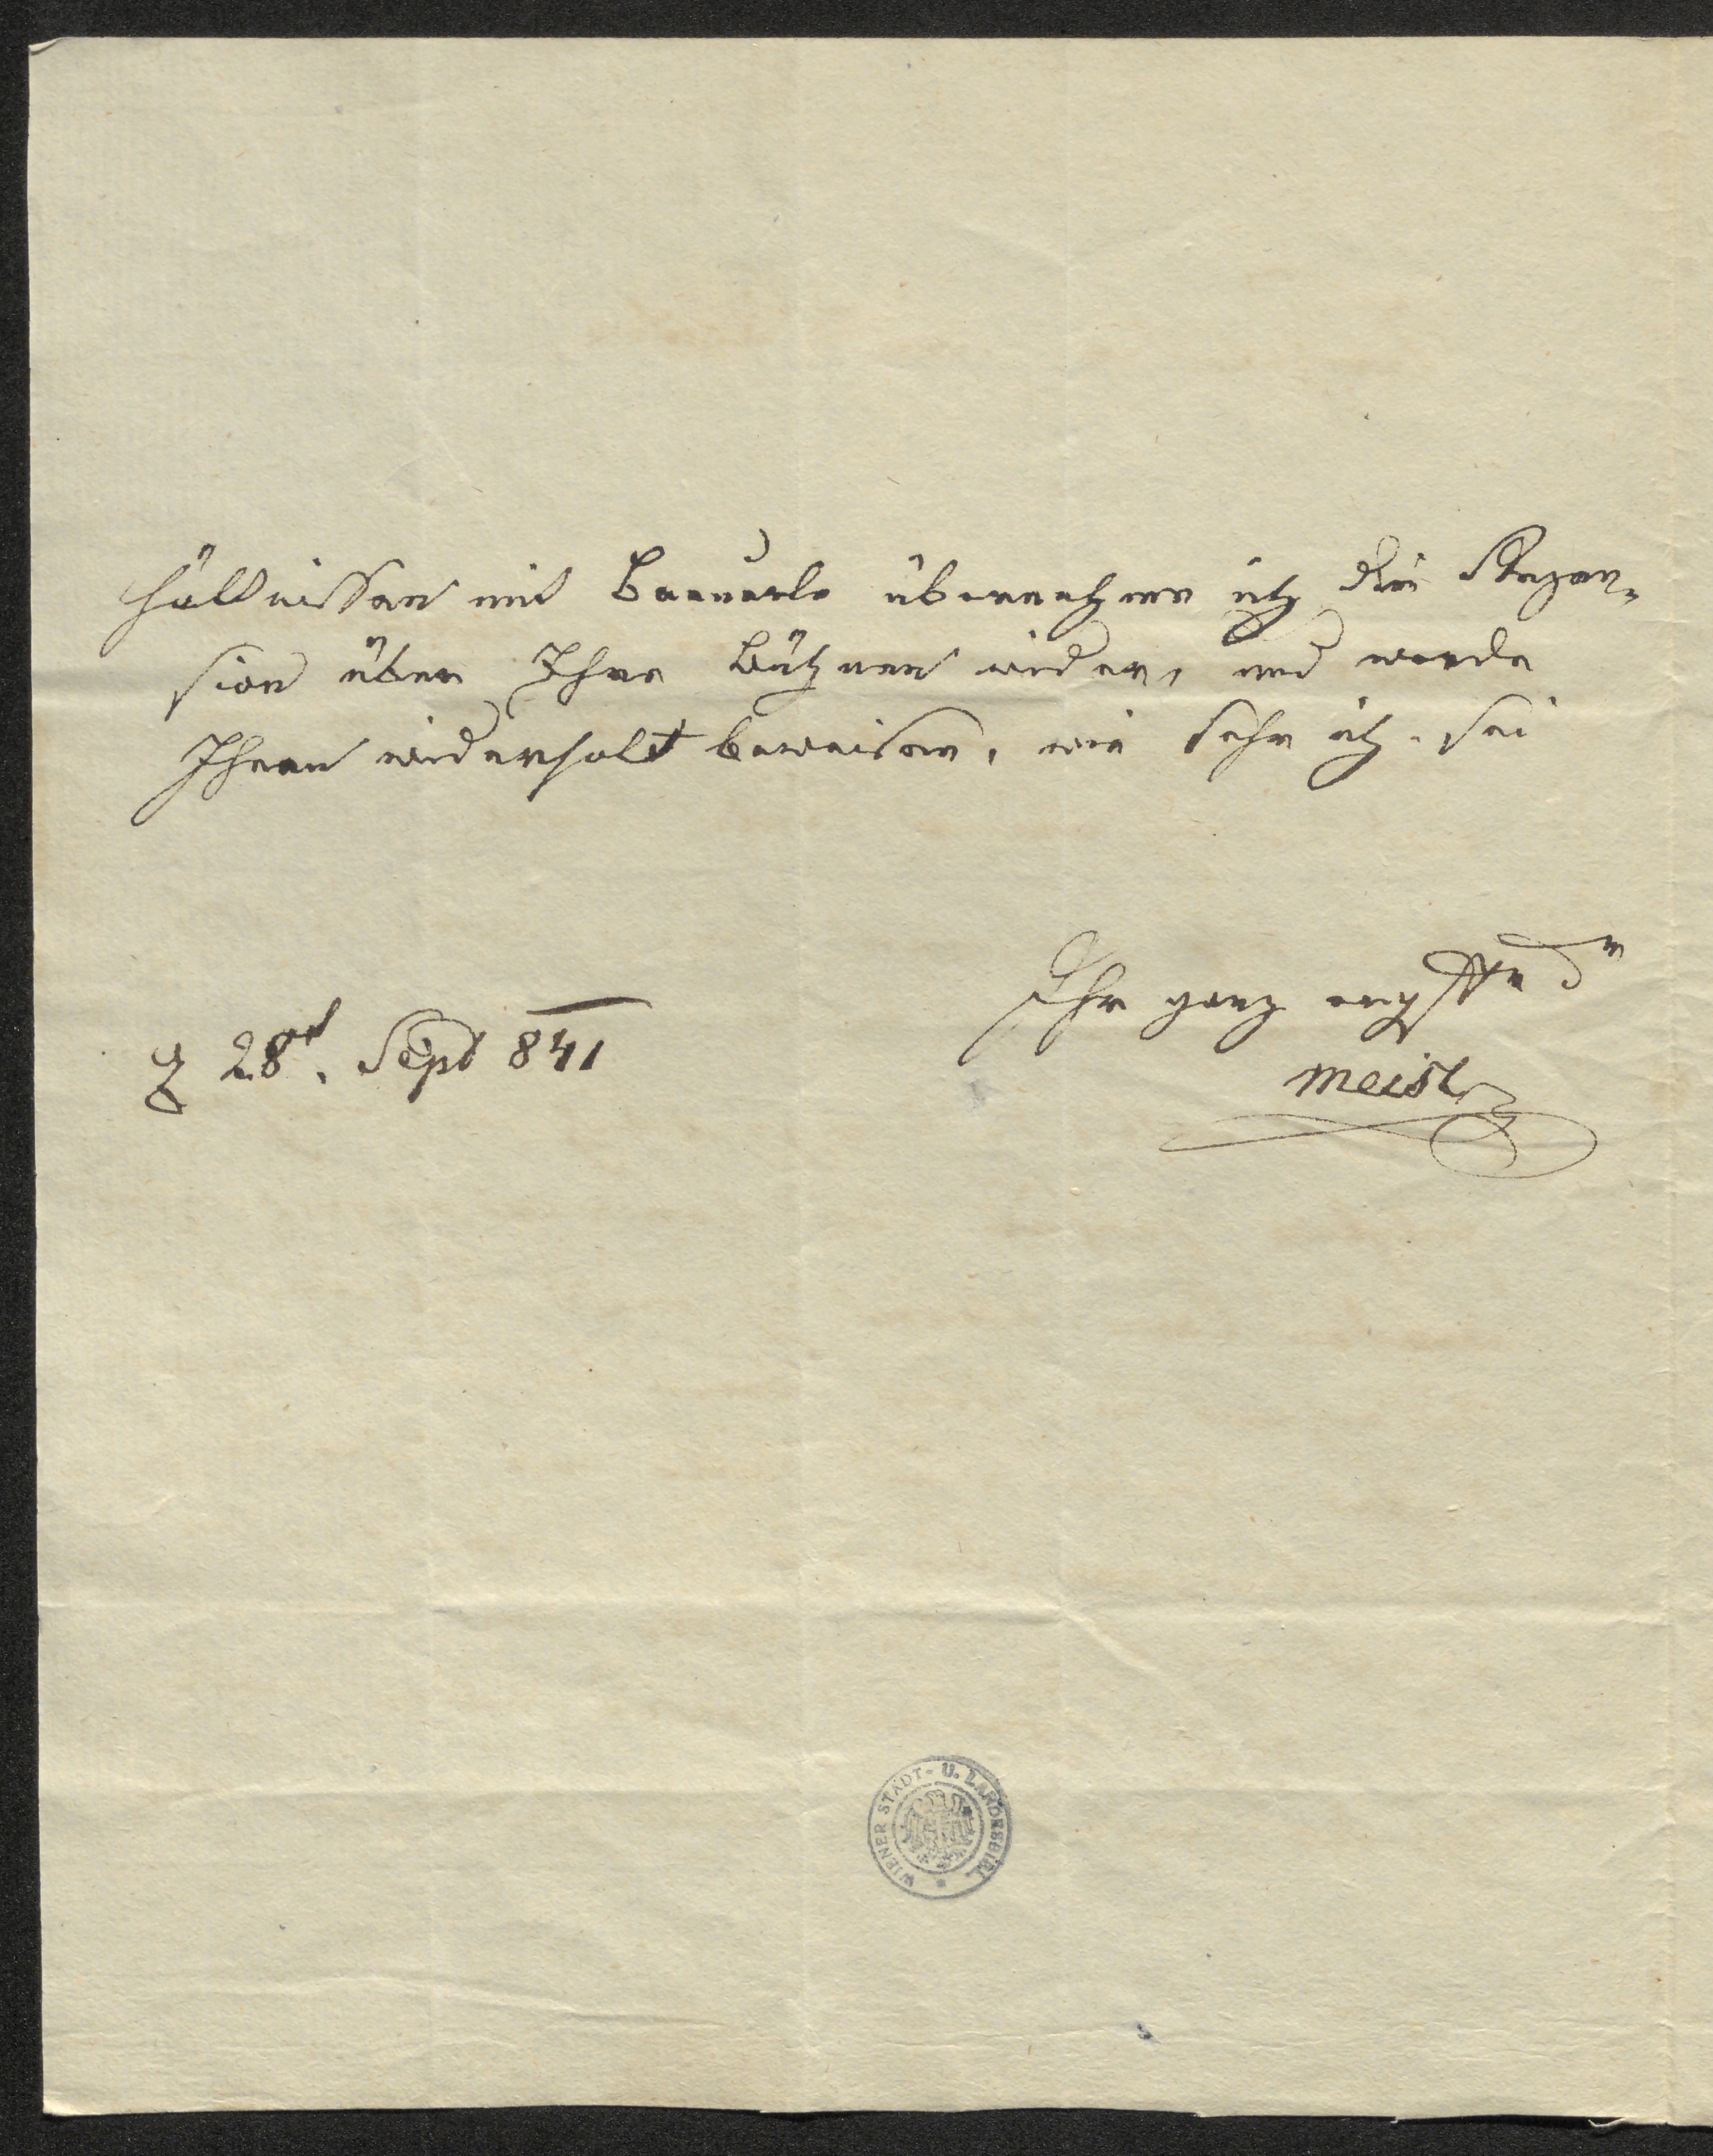 hältnissen mit Bäuerle übernehme ich die Rezen-
sion über Ihre Bühnen wieder, und werde
Ihnen wiederholt beweisen, wie sehr ich sei
Ihr ganz ergebstr
28t. Sept 841
Meisl
WIENER STADT- U. LANDESBIBL.